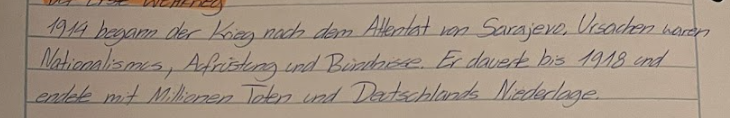 Der Erste Weltkrieg
1914 begann der Krieg nach dem Attentat von Sarajevo. Ursachen waren
Nationalismus, Aufrüstung und Bündnisse. Er dauerte bis 1918 und
endete mit Millionen Toten und Deutschlands Niederlage.